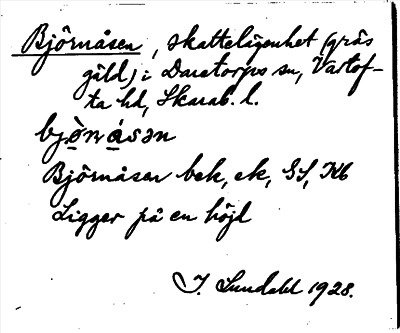 Björnåsen, skattelägenhet (gräs
gäld) i Daretorps sn, Vartof-
ta hd, Skarab. l.
bjö̀nåsən
Björnåsen bek, ek, GS, Kb
Ligger på en höjd
J. Sundahl 1928.